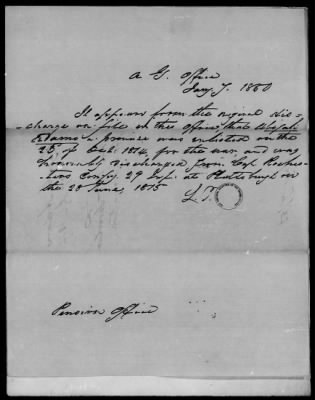 A. G. Office
Jany 7. 1850
It appears from the original dis-
charge on file in this Office, that
Adams a private was enlisted on the
25th of Feb. 1814, for the war, and was
honorably discharged from Capt
Compy. 29 Inf. at Plattsburgh on
the 28 June, 1815
L. T.
Pension Office